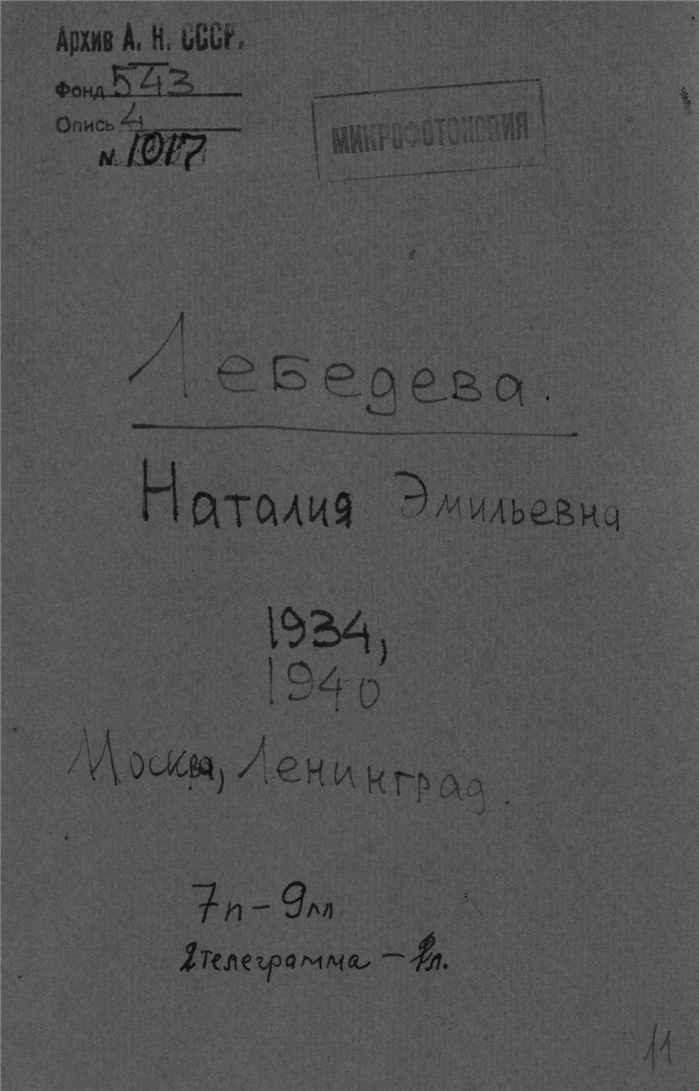 Архив А. Н. СССР.
Фонд 543
Опись 4
N. 1017
МИКРОФОТОКОПИЯ
Лебедева.
Наталия Эмильевна
1934,
1940
Москва, Ленинград.
7п – 9лл
2 телеграмма – 2л.
11